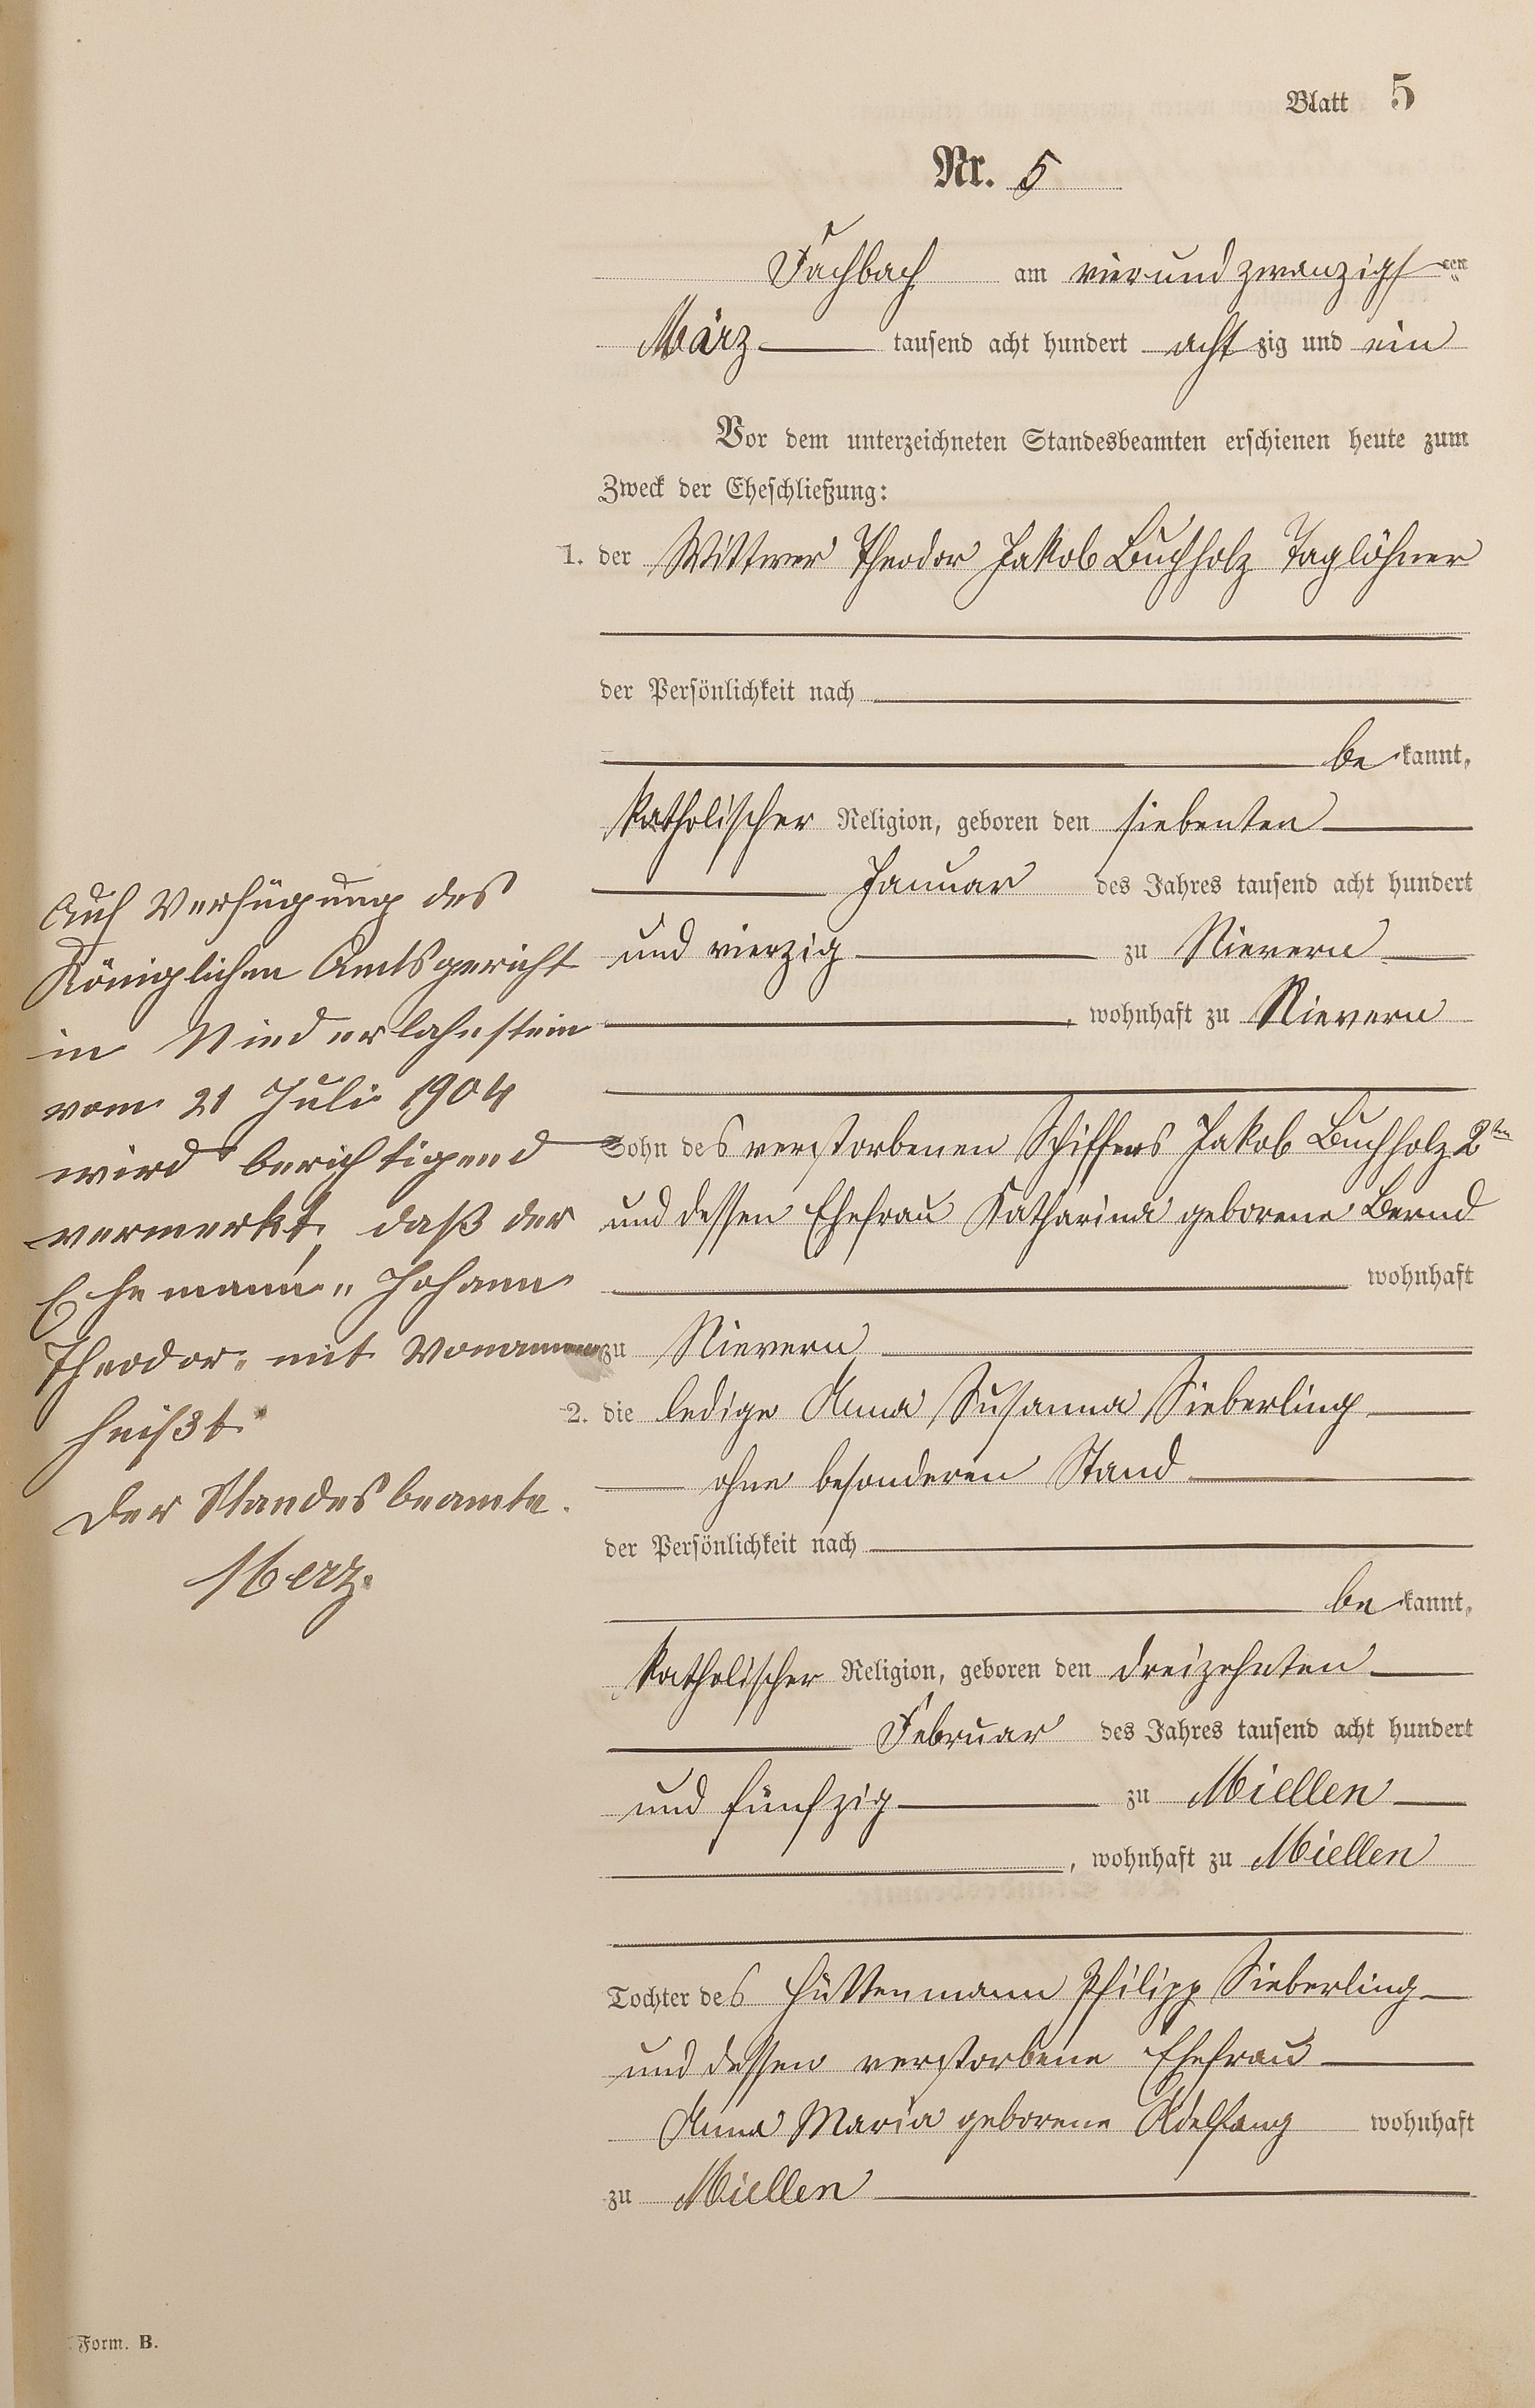 Blatt 5
Nr. 5
Fachbach am vierundzwanzigsten
März tausend acht hundert achtzig und ein
Vor dem unterzeichneten Standesbeamten erschienen heute zum
Zweck der Eheschließung:
1. der Wittwer Theodor Jakob Buchholz Taglöhner
der Persönlichkeit nach
be kannt,
katholischer Religion, geboren den siebenten
Januar des Jahres tausend acht hundert
und vierzig zu Nievern
, wohnhaft zu Nievern
Sohn des verstorbenen Schiffers Jakob Buchholz 2ten
und dessen Ehefrau Katharina geborene Bernd
wohnhaft
zu Nievern
2. die ledige Anna Susanna Sieberling
ohne besonderen Stand
der Persönlichkeit nach
be kannt,
katholischer Religion, geboren den dreizehnten
Februar des Jahres tausend acht hundert
und fünfzig zu Miellen
, wohnhaft zu Miellen
Tochter des Hüttenmann Philipp Sieberling
und dessen verstorbene Ehefrau
Anna Maria geborene Adelfang wohnhaft
zu Miellen
Auf Verfügung des
Königlichen Amtsgericht
in Niederlahnstein
vom 21 Juli 1904
wird berichtigend
vermerkt, daß der
Ehemann „Johann
Theodor“ mit Vornamen
heißt.
Der Standesbeamte.
Merz.
Form. B.